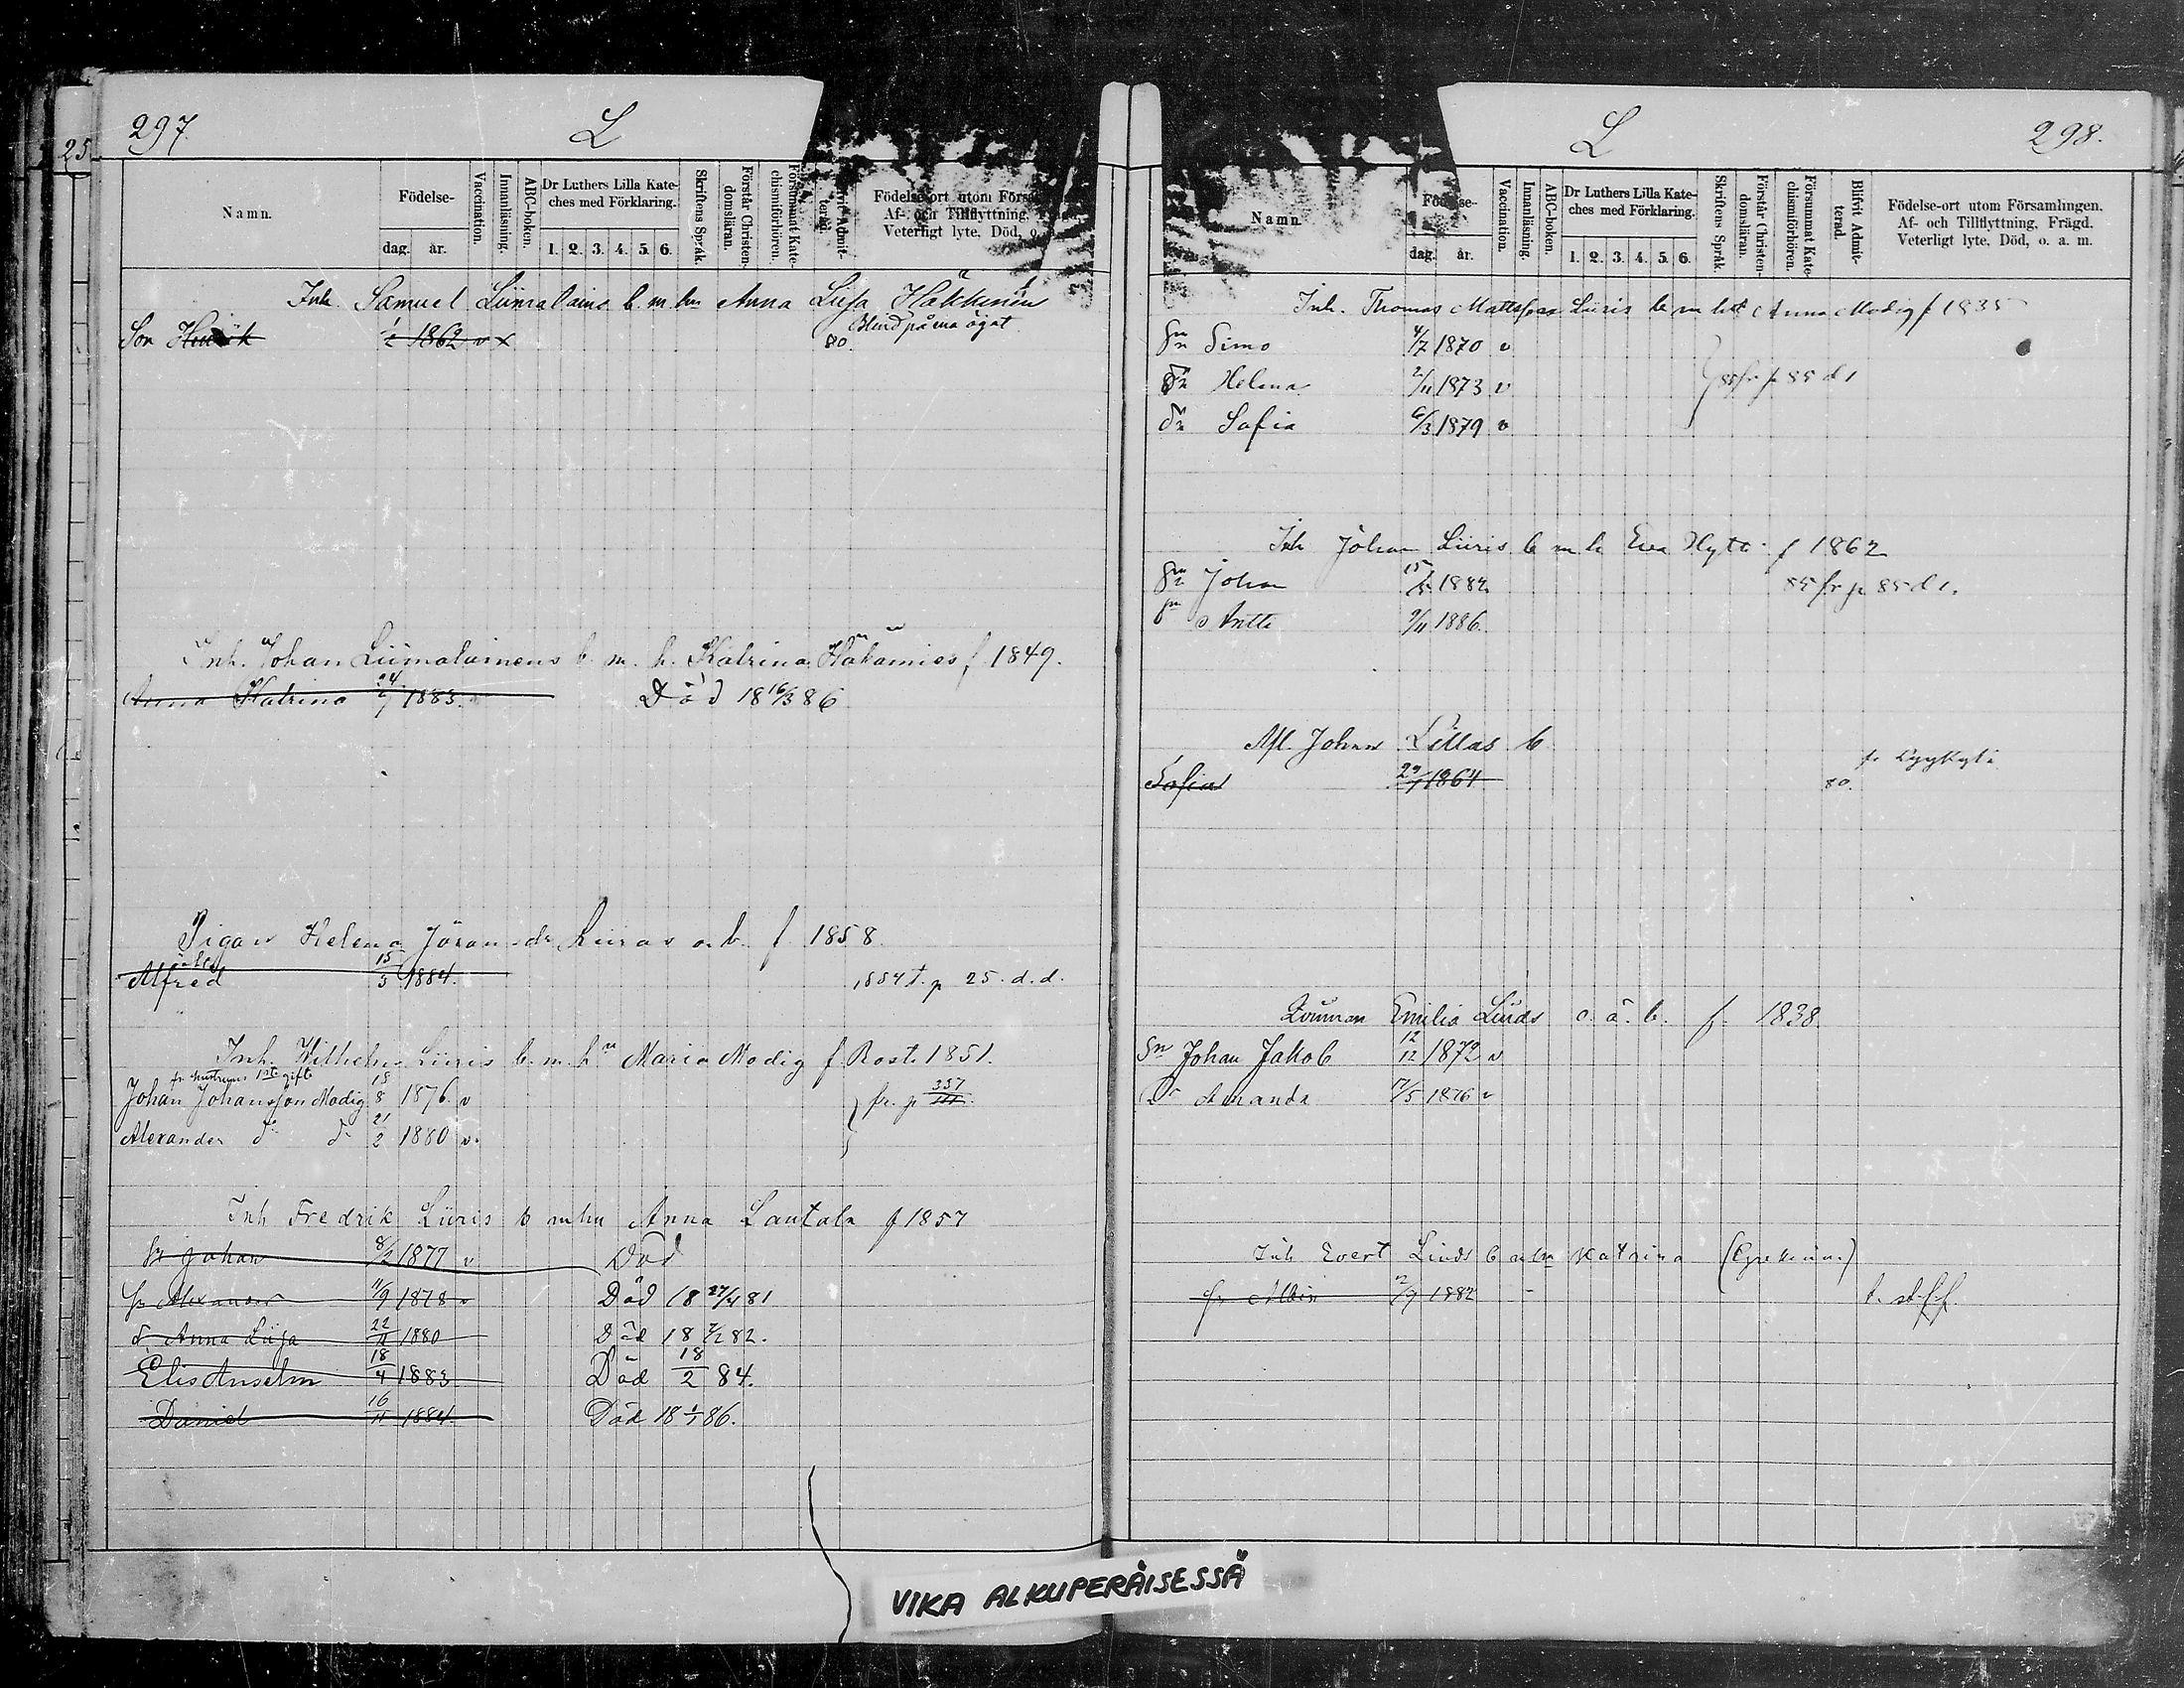 297.
L
25
Namn.
Födelse-
dag. år.
Vaccination.
Innanläsning.
ABC-boken.
Dr Luthers Lilla Kate-
ches med Förklaring.
1. 2. 3. 4. 5. 6.
Skriftens Språk.
Förstår Christen-
domsläran.
Försummat Kate-
chismiförhören.
Admit-
terad.
Födelse-ort utom
Af- och Tillflyttning.
Veterligt lyte, Död, o.
Inh. Samuel b. m. hu Anna Lisa Häkkinen
Blind på ena ögat
Son 1862 v x 80.
Inh. Johan Liimatainens b. m. h. Katrina Häkämies f. 1849.
Anna Katrina 24/7 1883. Död 18 16/3 86
Pigan Helena Jörans dr Liiras o. b. f 1858.
Alfred 15/3 1884. 1884 t. p 25. d. d.
Inh. Wilhelm Liiris b. m. hu Maria Modig f. Rost. 1851.
fr hustruns 1sta gifte
Johan Johansson Modig 18/8 1876. v fr. p 357
Alexander do do 21/2 1880 v.
Inh Fredrik Liiris b m hu Anna Lautala f 1857
Sn Johan 8/2 1877 v Död
Sn Alexander 11/9 1878 v Död 18 27/4 81
d. Anna Liisa 22/11 1880 Död 18 7/12 82.
Elis Anselm 18/4 1883 Död 18/2 84.
Daniel 16/11 1884. Död 18 1/1 86.
L
298.
Namn
Födelse-
dag. år.
Vaccination.
Innanläsning.
ABC-boken.
Dr Luthers Lilla Kate-
ches med Förklaring.
1. 2. 3. 4. 5. 6.
Skriftens Språk.
Förstår Christen-
domsläran.
Försummat Kate-
chismiförhören.
Blifvit Admit-
terad.
Födelse-ort utom Församlingen.
Af- och Tillflyttning, Frägd.
Veterligt lyte, Död, o. a. m.
Inh. Thomas Mattsson Liiris b m hu Anna Modig f 1835
Sn Simo 4/7 1870 v
Dr Helena 2/11 1873 v 85 fr p 85 d 1
dr Sofia 6/3 1879 v
Inh Johan Liiris b m h Eva Hytti f 1862
Sn Johan 1882 85 fr p 85 d 1.
sn Antti 9/11 1886.
Afl. Johan Lillas b
Sofia 29/1 1864 80.
Emilia Linds o. ä. b. f. 1838.
Sn Johan Jakob 12/12 1872 v
Dr Amanda 17/5 1876 v
Inh Evert Linds b m hu Katrina
sn Albin 12/9 1882 - t. st. f. f.
VIKA ALKUPERÄISESSÄ